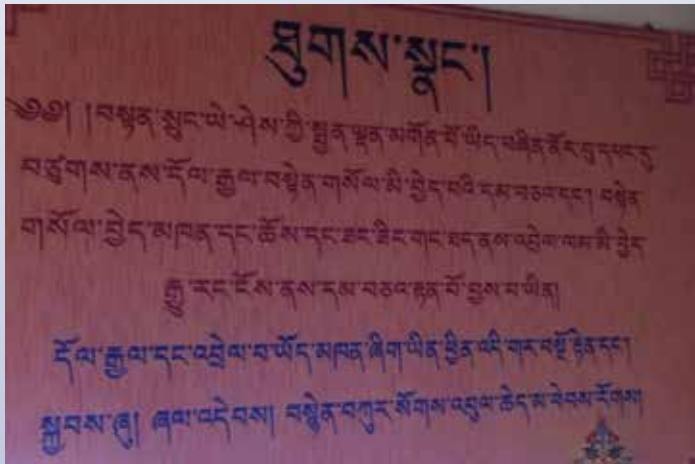 ཐུགས་སྣང་།
༄༅། །བསྟན་སྲུང་ཡེ་ཤེས་ཀྱི་སྤྱན་ལྡན་མགོན་པོ་ཡིད་བཞིན་ནོར་བུ་དཔང་དུ
བཙུགས་ནས་དོལ་རྒྱལ་བསྟེན་གསོལ་མི་བྱེད་པའི་དམ་བཅའ་དང་། བསྟེན
གསོལ་བྱེད་མཁན་དང་ཆོས་དང་ཟང་ཟིང་གང་ཐད་ནས་འབྲེལ་ལམ་མི་བྱེད
རྒྱུ་རང་ངོས་ནས་དམ་བཅའ་རྟན་པོ་བྱས་པ་ཡིན།
དོལ་རྒྱལ་དང་འབྲེལ་བ་ཡོད་མཁན་ཞིག་ཡིན་ཕྱིན་འདི་གར་བསྔོ་རྟེན་དང་།
སྐྱབས་ཞུ། ཞལ་འདེབས། བསྙེན་བཀུར་སོགས་འབུལ་ཆེད་མ་ཕེབས་རོགས།